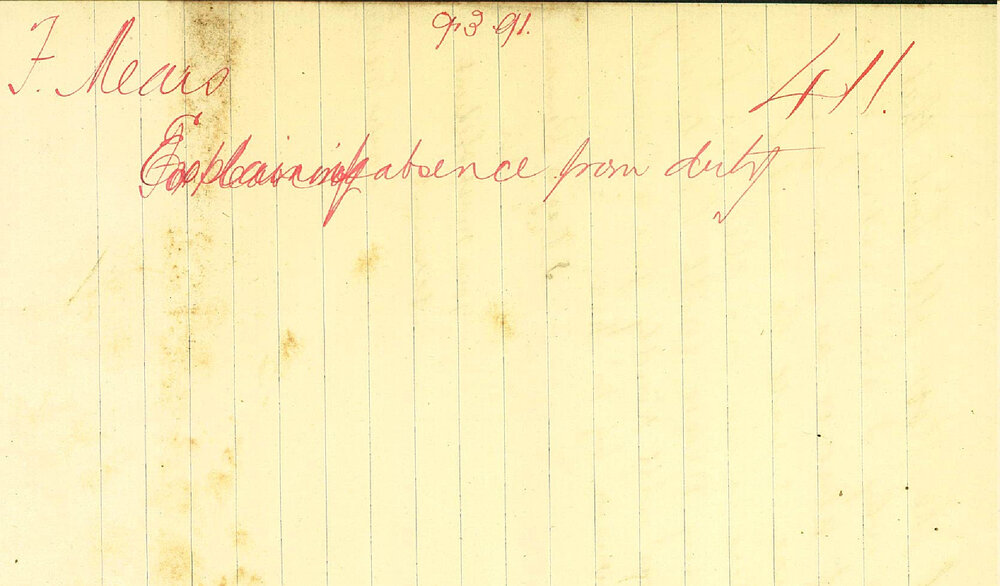 9.3.91.
F. Mears
411.
Explaining absence from duty